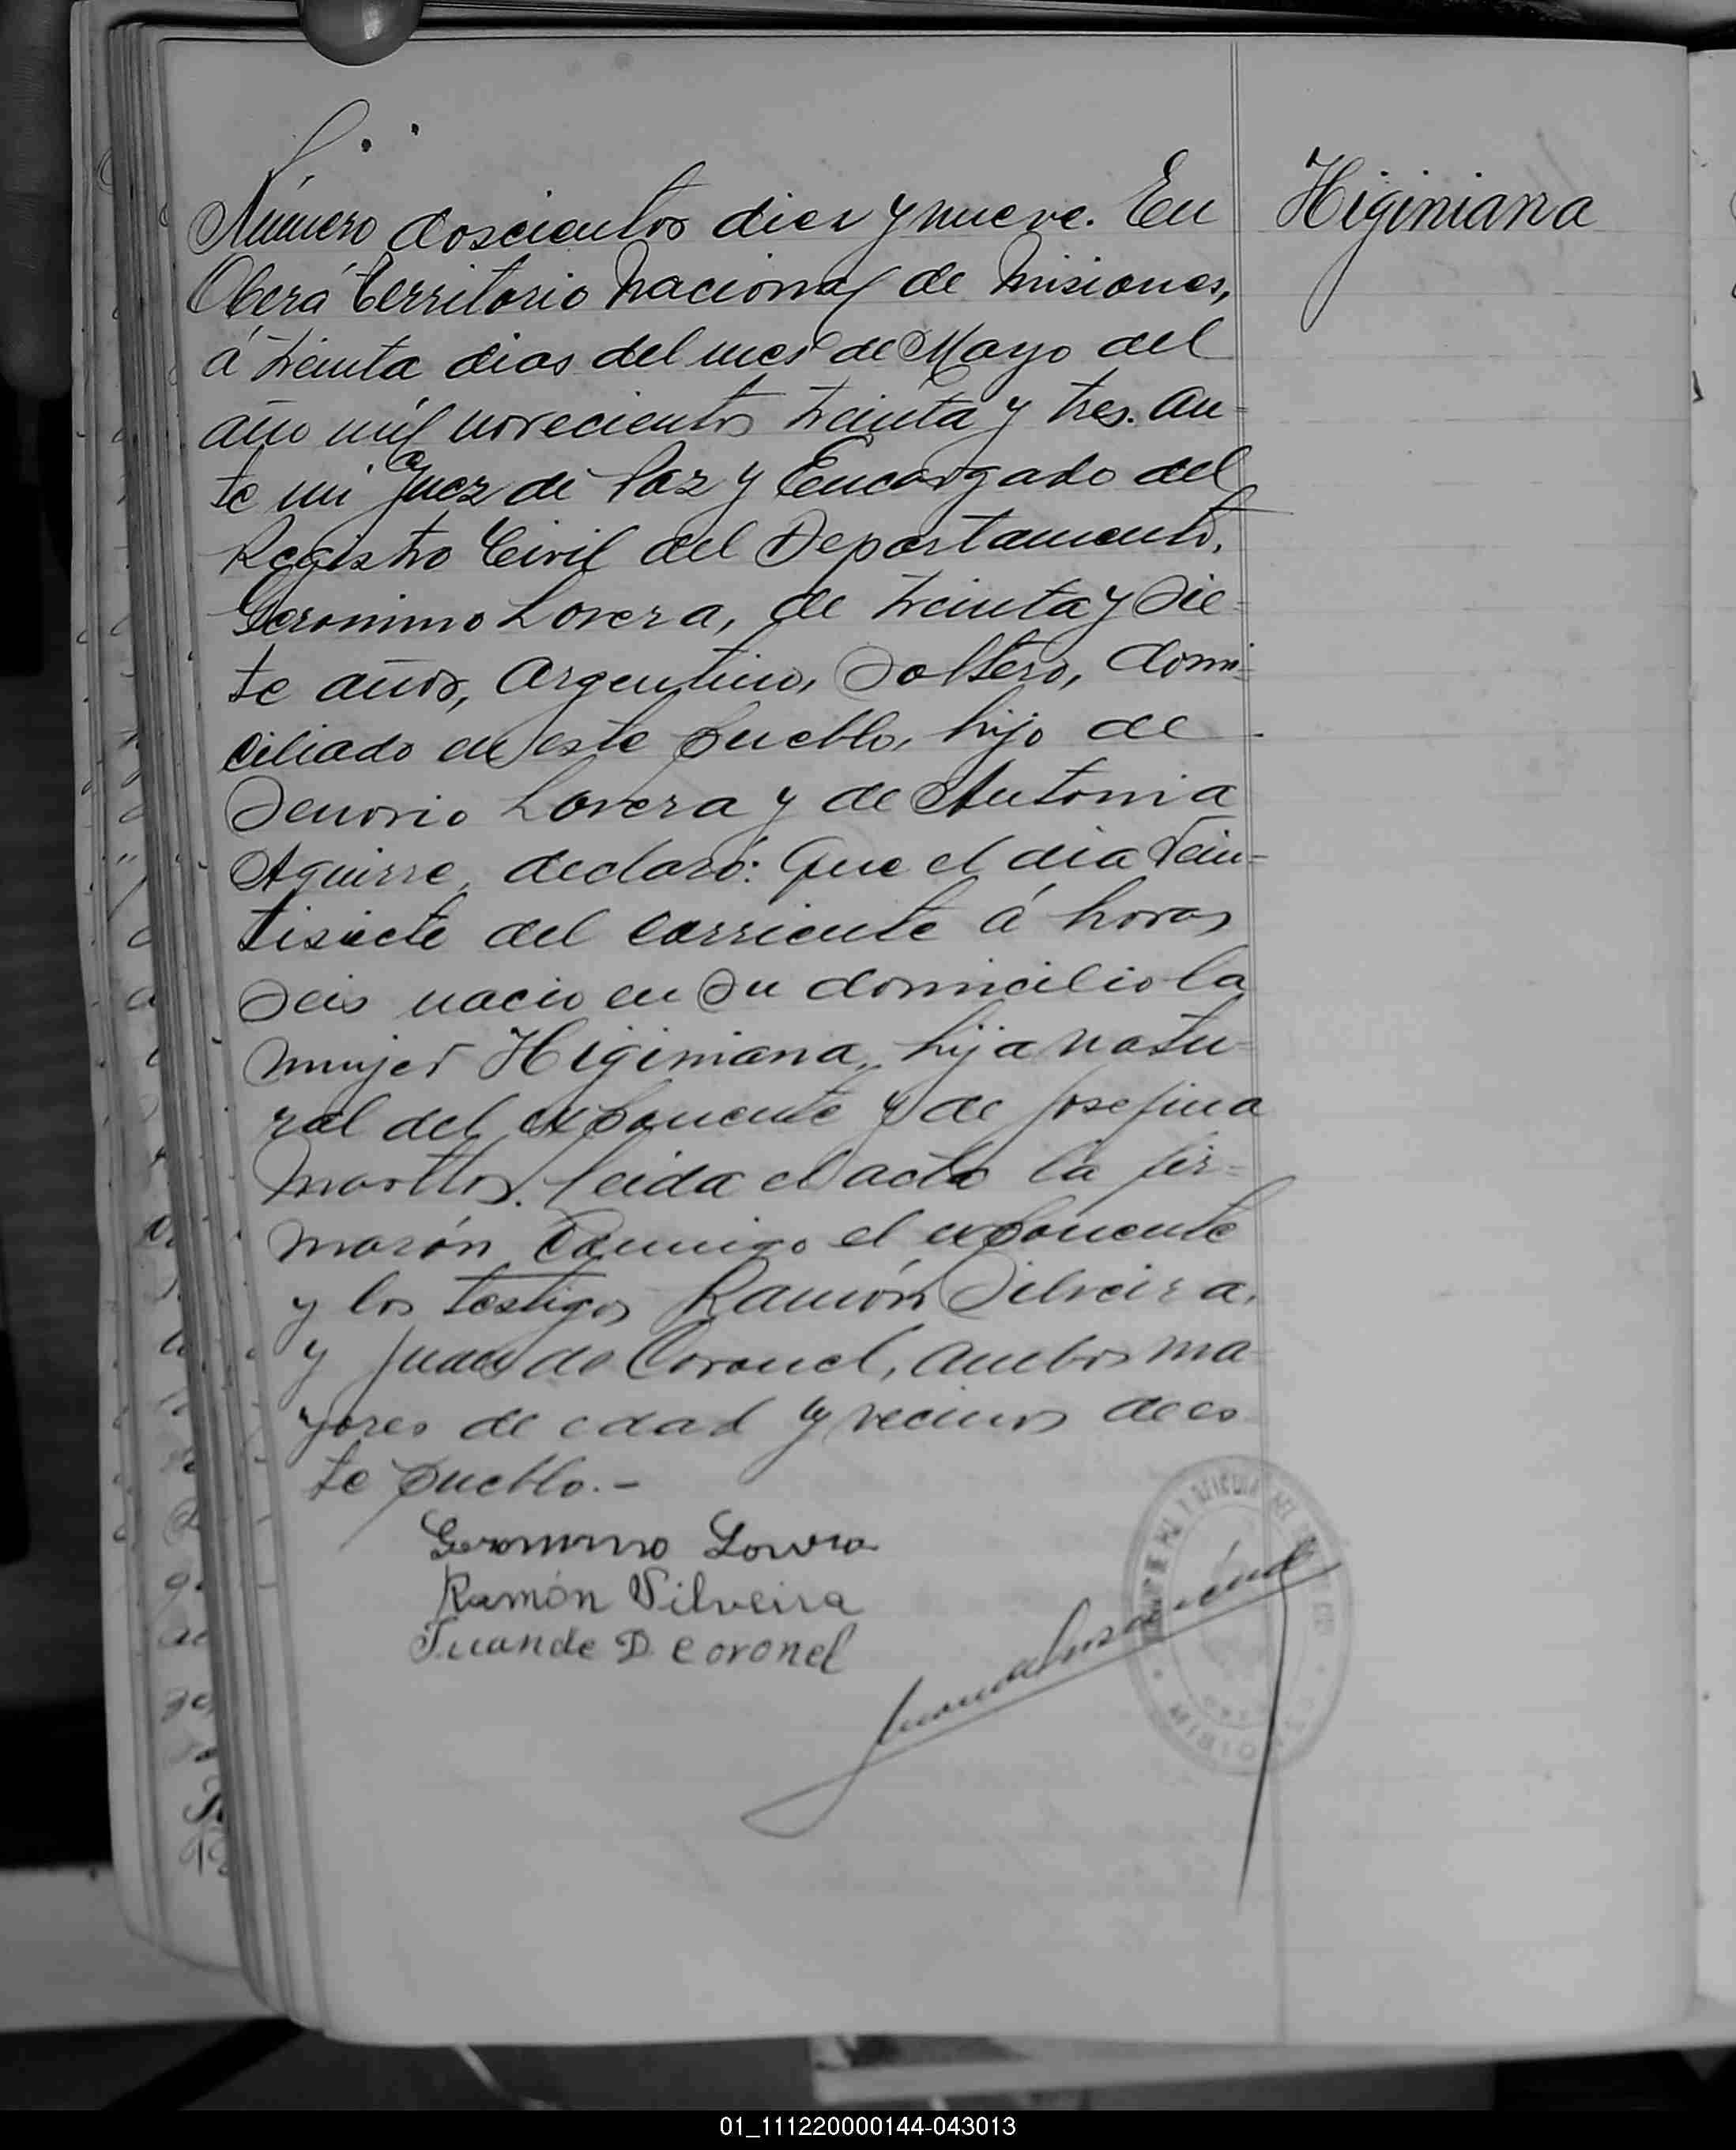 Higiniana
Número doscientos diez y nueve. En
Oberá Territorio Nacional de Misiones,
á treinta dias del mes de Mayo del
año mil novecientos treinta y tres. An=
te mi Juez de Paz y Encargado del
Registro Civil del Departamento,
Geronimo Lovera, de treinta y Sie=
te años, Argentino, Soltero, domi=
ciliado en este pueblo, hijo de
Lovera y de Antonia
Aguirre, declaró: Que el dia Vein=
tisiete del corriente á horas
Seis nacio en Su domicilio la
mujer Higiniana, hija natu=
ral del exponente y de Josefina
leida el acta la fir=
marón conmigo el exponente
y los testigos Ramón Silveira,
y Juan de Coronel, ambos ma
yores de edad y vecinos de es
te pueblo.-
Geronimo Lovera
Ramón Silveira
Juan de D. Coronel